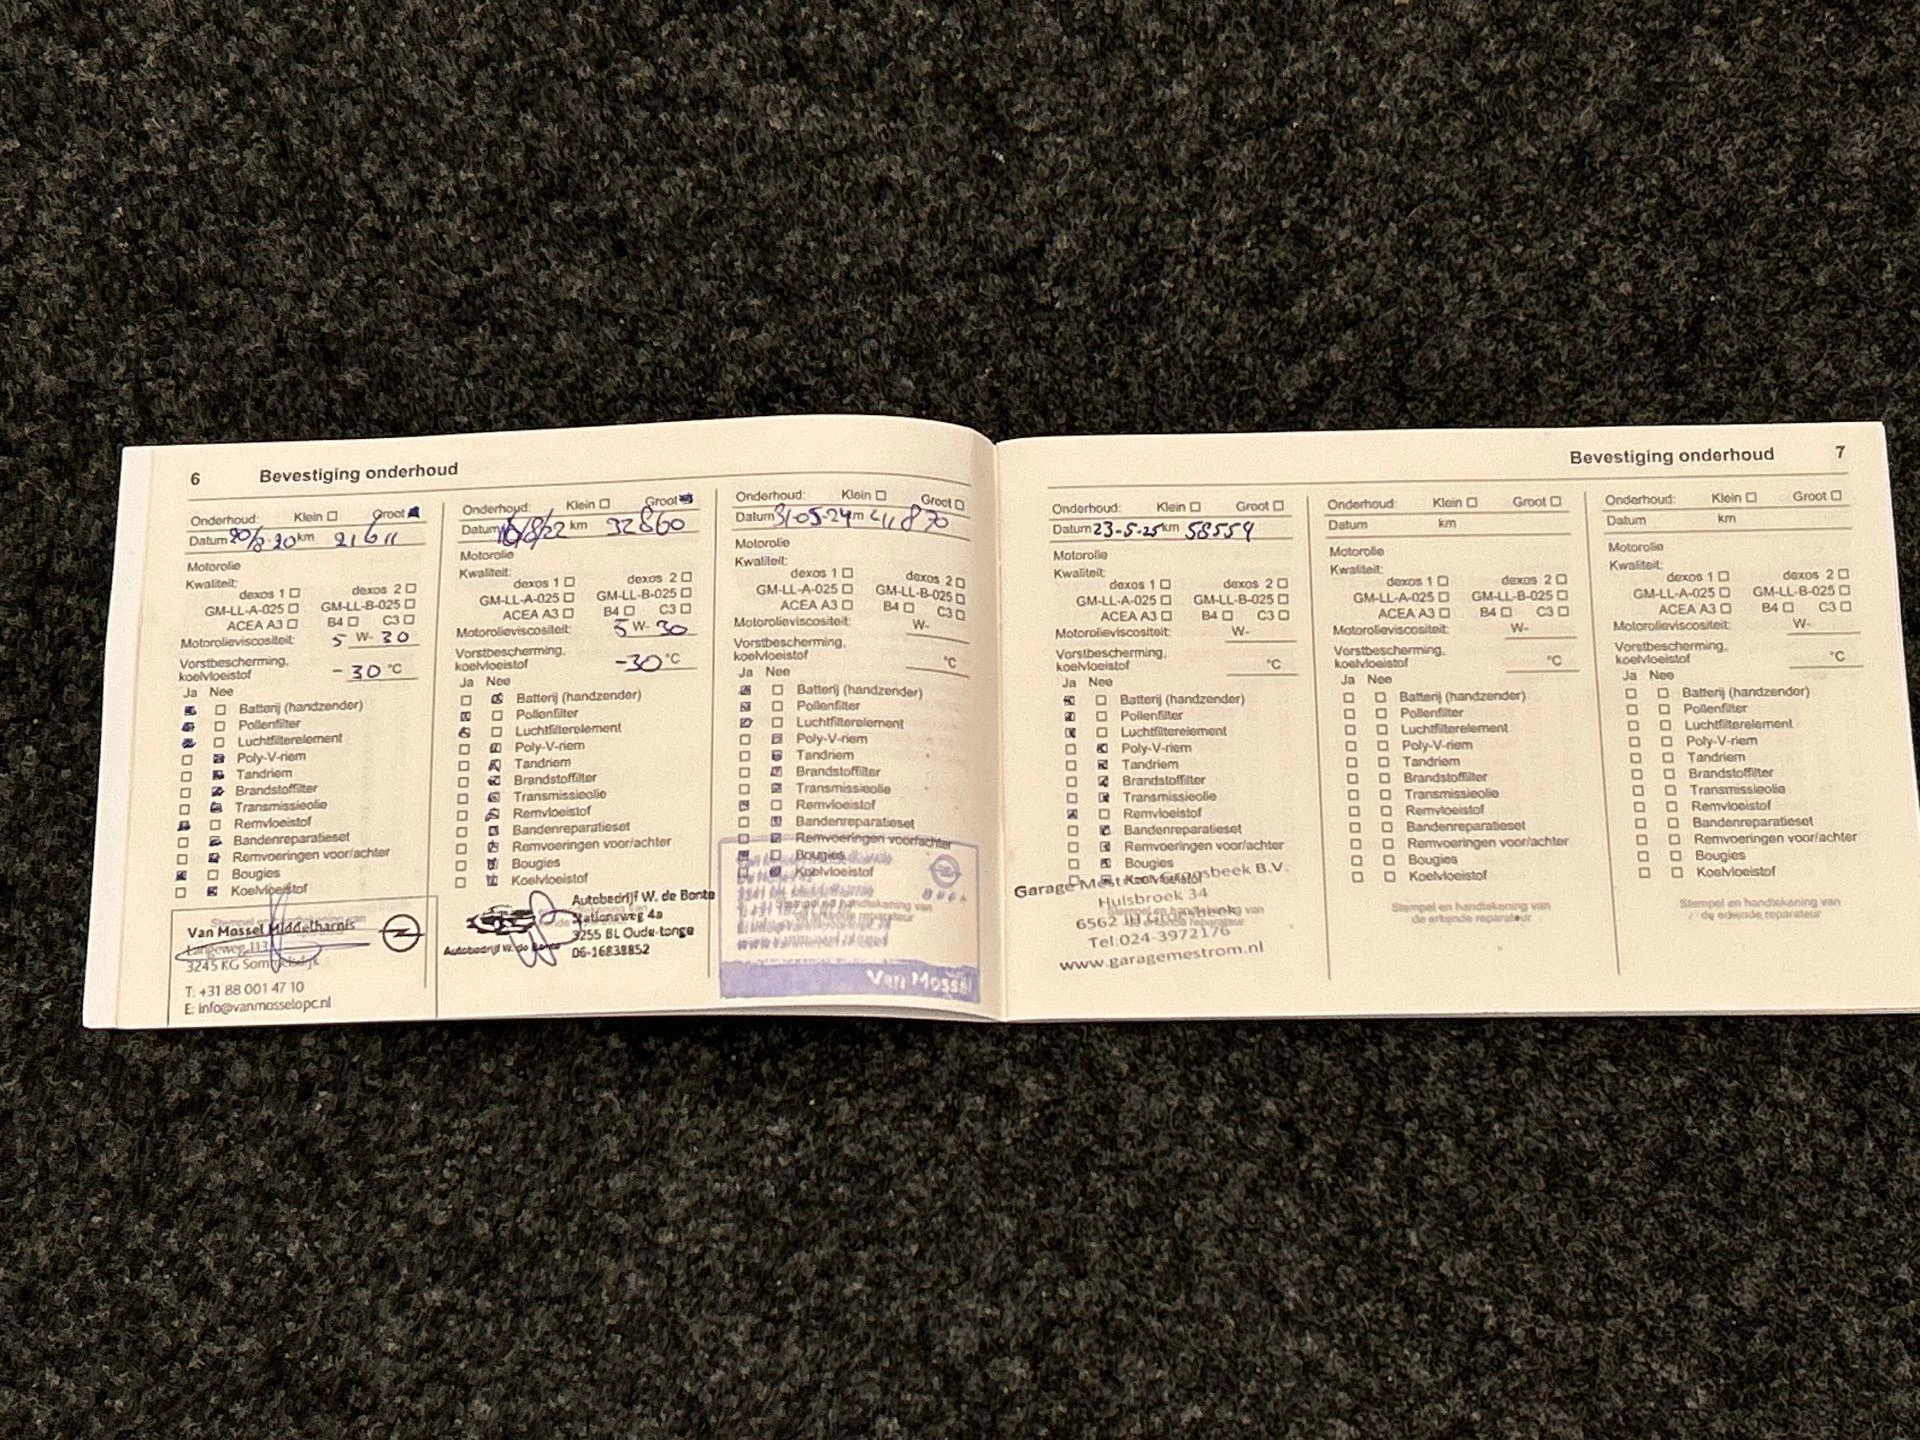 6 Bevestiging onderhoud
Onderhoud: Klein Groot
Datum 20/8-20 km 21611
Motorolie
Kwaliteit:
dexos 1 dexos 2
GM-LL-A-025 GM-LL-B-025
ACEA A3 B4 C3
Motorolieviscositeit: 5 W- 30
Vorstbescherming,
koelvloeistof - 30 °C
Ja Nee
Batterij (handzender)
Pollenfilter
Luchtfilterelement
Poly-V-riem
Tandriem
Brandstoffilter
Transmissieolie
Remvloeistof
Bandenreparatieset
Remvoeringen voor/achter
Bougies
Koelvloeistof
Stempel en handtekening van
Van Mossel Middelharnis
Langeweg 113
3245 KG Sommelsdijk
T: +31 88 001 47 10
E: info@vanmosselopc.nl
Onderhoud: Klein Groot
Datum 16/8/22 km 32860
Motorolie
Kwaliteit:
dexos 1 dexos 2
GM-LL-A-025 GM-LL-B-025
ACEA A3 B4 C3
Motorolieviscositeit: 5 W- 30
Vorstbescherming,
koelvloeistof -30 °C
Ja Nee
Batterij (handzender)
Pollenfilter
Luchtfilterelement
Poly-V-riem
Tandriem
Brandstoffilter
Transmissieolie
Remvloeistof
Bandenreparatieset
Remvoeringen voor/achter
Bougies
Koelvloeistof
Autobedrijf W. de Bonte
Stationsweg 4a
3255 BL Oude-tonge
06-16838852
Autobedrijf W. de Bonte
Onderhoud: Klein Groot
Datum 31-05-24 m 41870
Motorolie
Kwaliteit:
dexos 1 dexos 2
GM-LL-A-025 GM-LL-B-025
ACEA A3 B4 C3
W-
Vorstbescherming,
koelvloeistof °C
Ja Nee
Batterij (handzender)
Pollenfilter
Luchtfilterelement
Poly-V-riem
Tandriem
Brandstoffilter
Transmissieolie
Remvloeistof
Bandenreparatieset
Remvoeringen voor/achter
Bougies
Koelvloeistof
Stempel en handtekening van
de erkende reparateur
Van Mossel
Bevestiging onderhoud 7
Onderhoud: Klein Groot
Datum 23-5-25 km 58554
Motorolie
Kwaliteit:
dexos 1 dexos 2
GM-LL-A-025 GM-LL-B-025
ACEA A3 B4 C3
Motorolieviscositeit: W-
Vorstbescherming,
koelvloeistof °C
Ja Nee
Batterij (handzender)
Pollenfilter
Luchtfilterelement
Poly-V-riem
Tandriem
Brandstoffilter
Transmissieolie
Remvloeistof
Bandenreparatieset
Remvoeringen voor/achter
Bougies
Koelvloeistof
Garage Mestrom Groesbeek B.V.
Hulsbroek 34
6562 JH Groesbeek
Stempel en handtekening van
de erkende reparateur
Tel:024-3972176
www.garagemestrom.nl
Onderhoud: Klein Groot
Datum km
Motorolie
Kwaliteit:
dexos 1 dexos 2
GM-LL-A-025 GM-LL-B-025
ACEA A3 B4 C3
Motorolieviscositeit: W-
Vorstbescherming,
koelvloeistof °C
Ja Nee
Batterij (handzender)
Pollenfilter
Luchtfilterelement
Poly-V-riem
Tandriem
Brandstoffilter
Transmissieolie
Remvloeistof
Bandenreparatieset
Remvoeringen voor/achter
Bougies
Koelvloeistof
Stempel en handtekening van
de erkende reparateur
Onderhoud: Klein Groot
Datum km
Motorolie
Kwaliteit:
dexos 1 dexos 2
GM-LL-A-025 GM-LL-B-025
ACEA A3 B4 C3
Motorolieviscositeit: W-
Vorstbescherming,
koelvloeistof °C
Ja Nee
Batterij (handzender)
Pollenfilter
Luchtfilterelement
Poly-V-riem
Tandriem
Brandstoffilter
Transmissieolie
Remvloeistof
Bandenreparatieset
Remvoeringen voor/achter
Bougies
Koelvloeistof
Stempel en handtekening van
de erkende reparateur